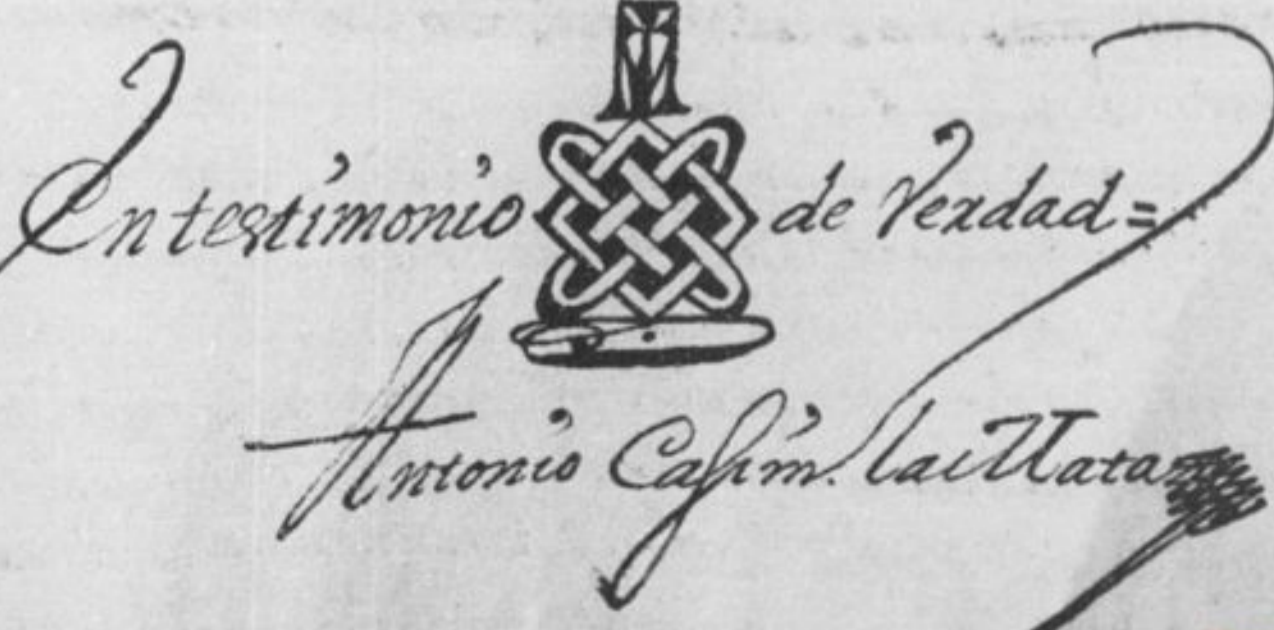 En testimonio de Verdad =
Antonio Casim. la Mata